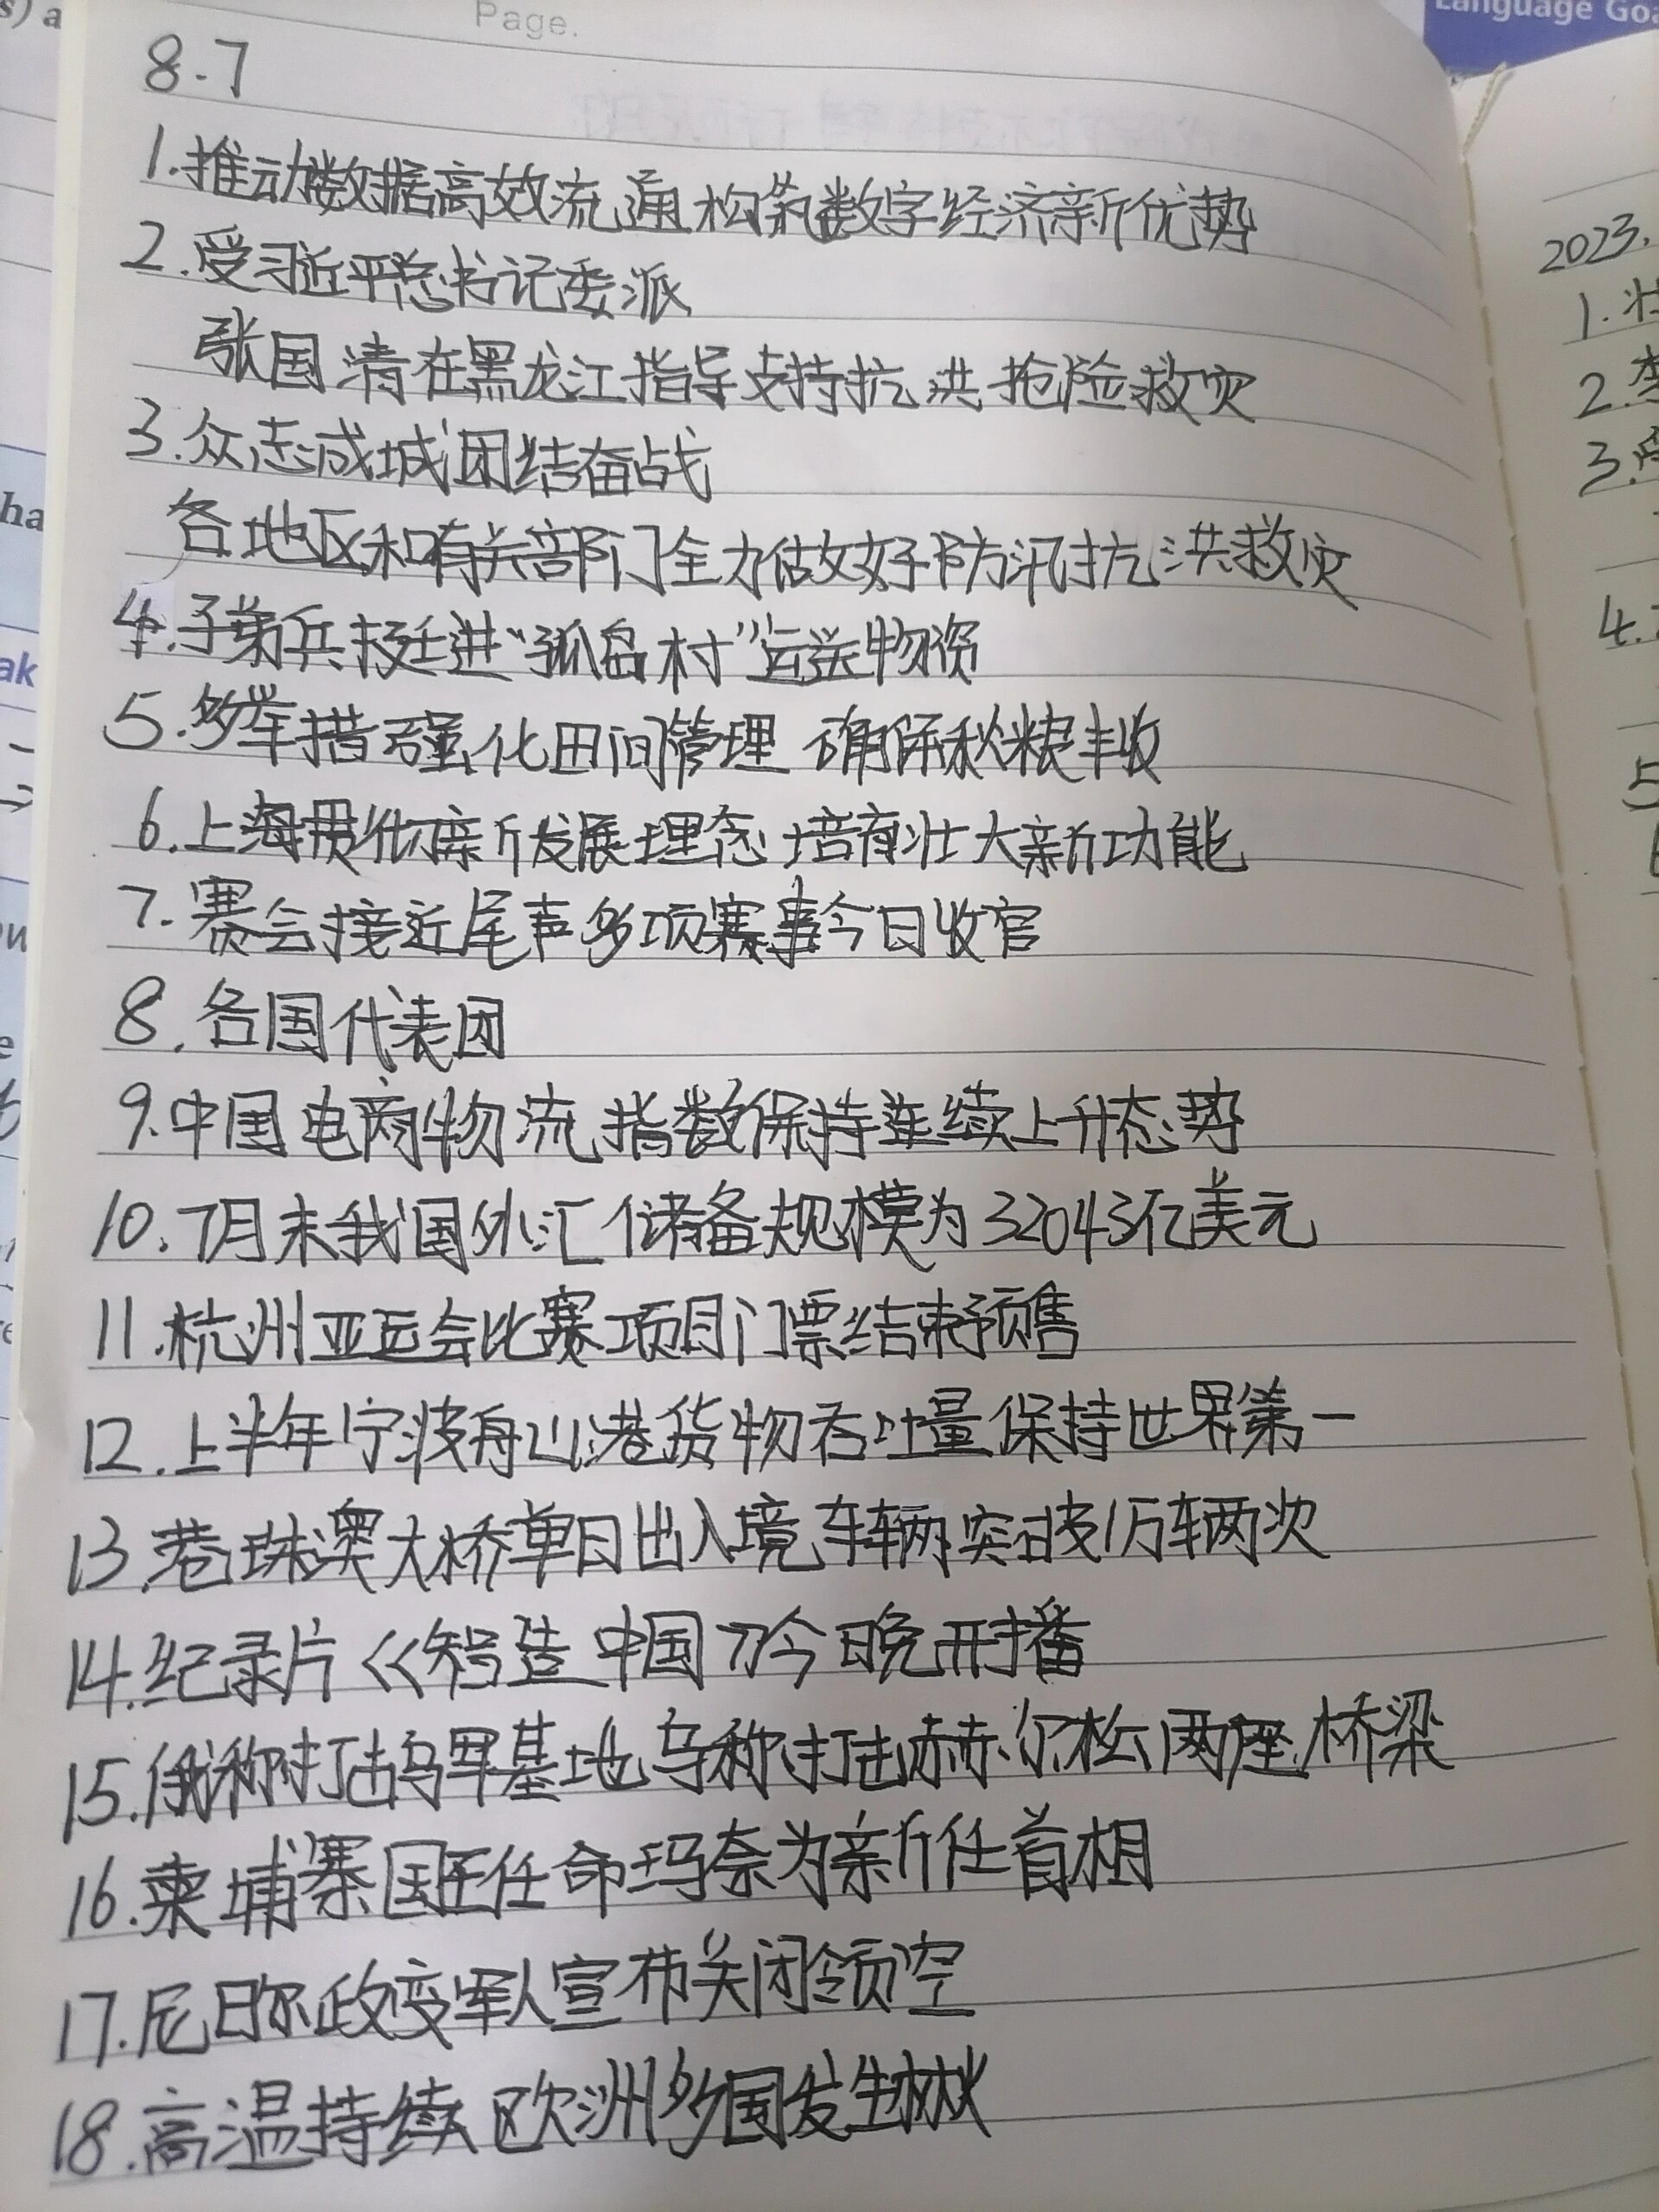 Page.
8.7
1.推动数据高效流通 构筑数字经济新优势
2.受习近平总书记委派
张国清在黑龙江指导支持抗洪抢险救灾
3.众志成城团结奋战
各地区和有关部门全力做好防汛抗洪救灾
4.子弟兵挺进“孤岛村”运送物资
5.多举措强化田间管理 确保秋粮丰收
6.上海贯彻新发展理念 培育壮大新功能
7.赛会接近尾声多项赛事今日收官
8.各国代表团
9.中国电商物流指数保持连续上升态势
10.7月末我国外汇储备规模为32043亿美元
11.杭州亚运会比赛项目门票结束预售
12.上半年宁波舟山港货物吞吐量保持世界第一
13.港珠澳大桥单日出入境车辆突破1万车辆次
14.纪录片《智造中国》今日晚开播
15.俄称打击乌军基地 乌称打击赫尔松两座桥梁
16.柬埔寨国王任命玛奈为新任首相
17.尼日尔政变军人宣布关闭领空
18.高温持续 欧洲多国发生林火
Language Goa
2023.
1.壮
2.李
3.
4.
5
ha
ak